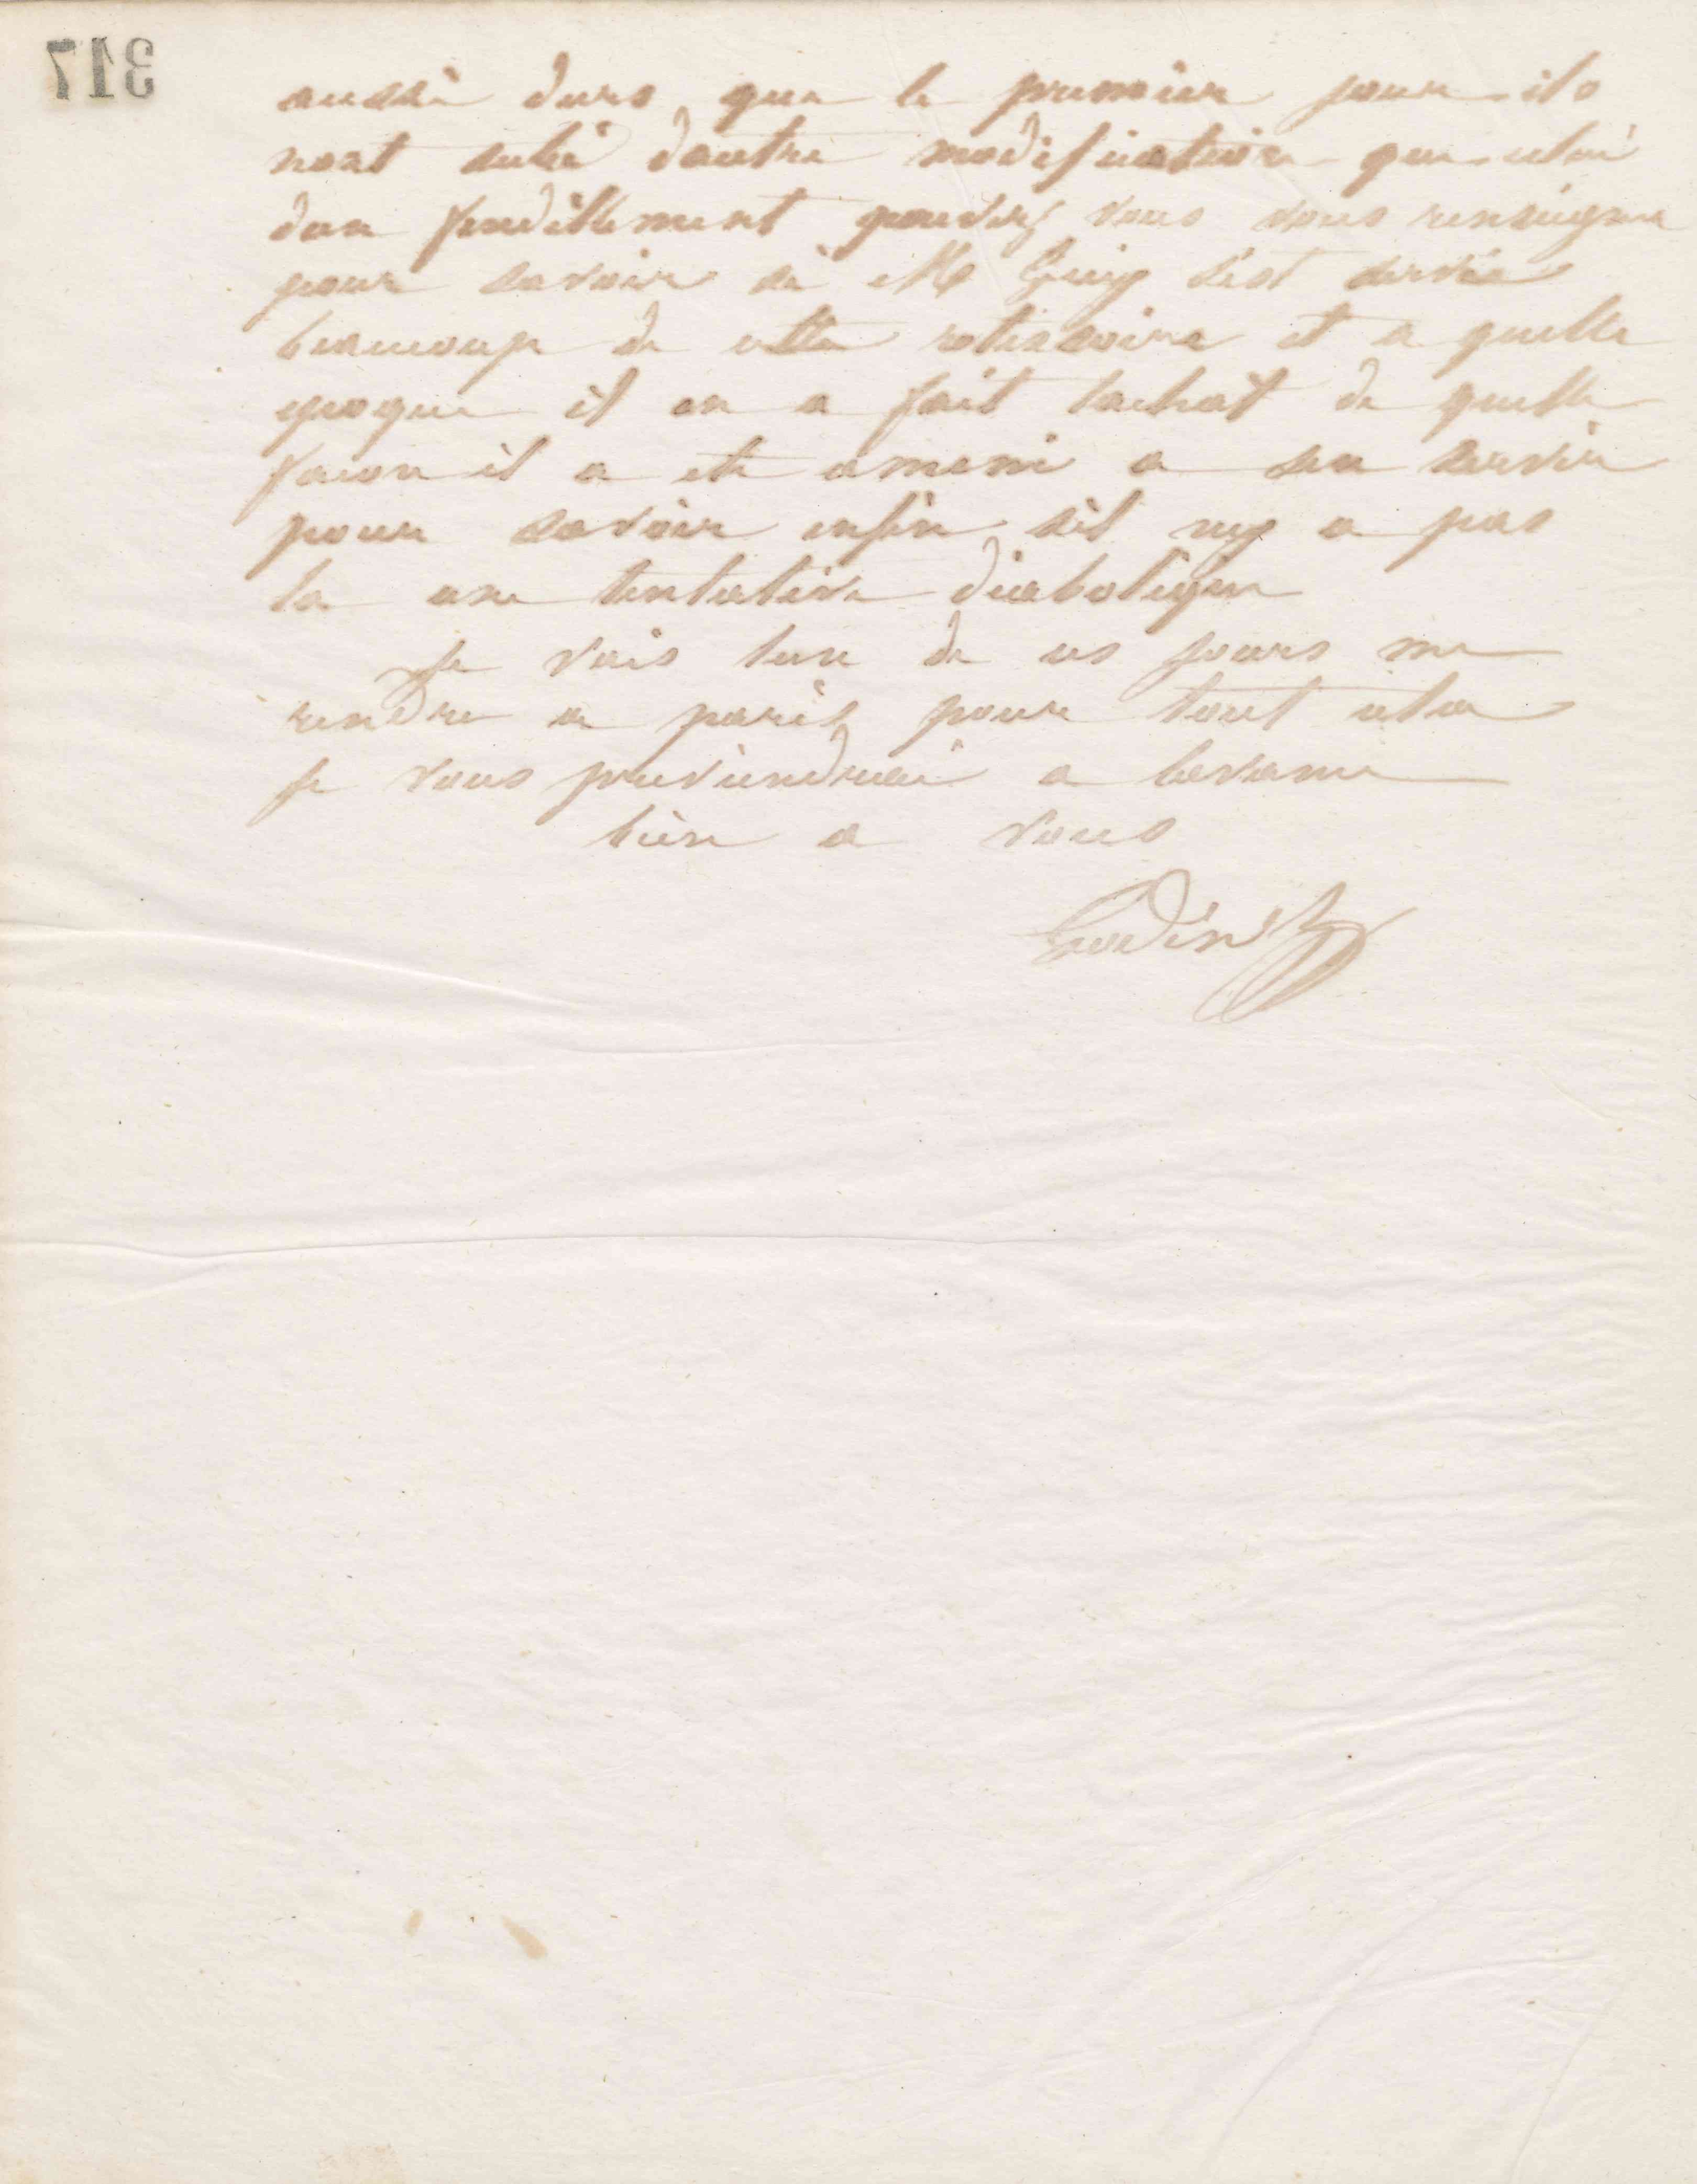 317
aussi durs que le premier jour ils
nont subi dautre modification que celui
dun fendillement pouvez vous vous renseigner
pour savoir si Mr Guy sest servie
beaucoup de cette rotissoire et a quelle
epoque il en a fait lachat de quelle
facon il a ete amené a sen servir
pour savoir enfin sil ny a pas
la une tentative diabolique
je vais lun de ces jours me
rendre a paris pour tout cela
je vous previendrai a lavance
bien a vous
Godin